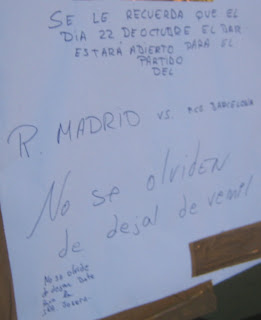 SE LE RECUERDA QUE EL
DÍA 22 DE OCTUBRE EL BAR
ESTARÁ ABIERTO PARA EL
PARTIDO
DEL
R. MADRID VS. BARCELONA
No se olviden
de dejal de venil
No se olvide